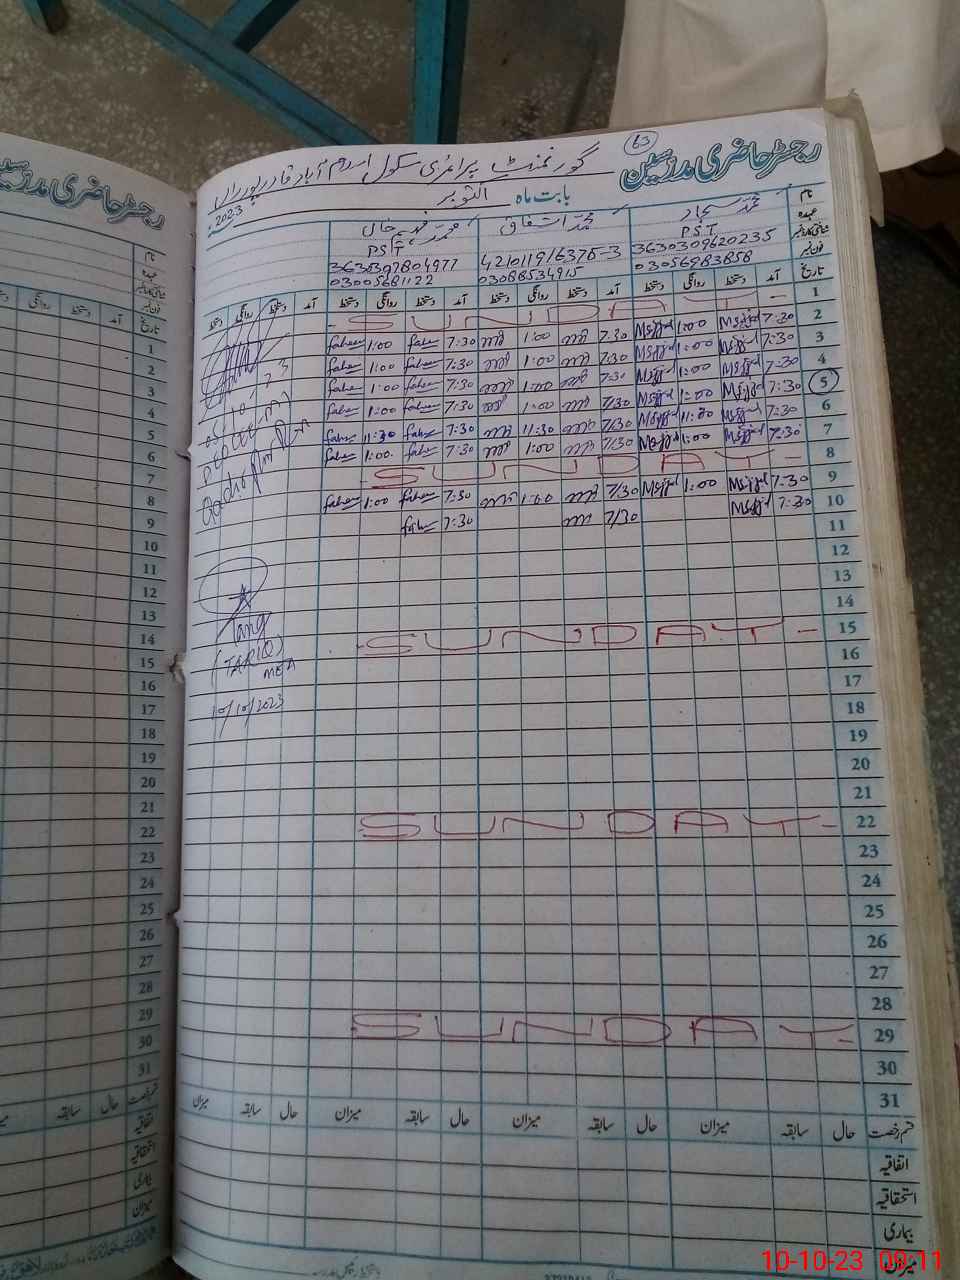 63
رجسٹر حاضری مدرسین
گورنمنٹ پرائمری سکول اسلام آباد قادر پوراں
بابت ماہ اکتوبر 2023
نام محمد سجاد محمد اشفاق محمد فہیم خان
عہدہ PST PST
شناختی کارڈ نمبر 3630309620235 421011916375-3 3630307804977
فون نمبر 03056983858 03088534915 03005681122
تاریخ آمد دستخط روانگی دستخط آمد دستخط روانگی دستخط آمد دستخط روانگی دستخط آمد دستخط روانگی دستخط
1 SUNDAY
2 7:30 Msjjd 1:00 Msjjd 7:30 1:00 7:30 fahee 1:00 fahee
3 7:30 Msjjd 1:00 Msjjd 7:30 1:00 7:30 fahee 1:00 fahee
4 7:30 Msjjd 1:00 Msjjd 7:30 1:00 7:30 fahee 1:00 fahee
5 7:30 Msjjd 1:00 Msjjd 7/30 1:00 7:30 fahee 1:00 fahee
6 7:30 Msjjd 11:30 Msjjd 7/30 11:30 7:30 fahee 11:30 fahee
7 7:30 Msjjd 1:00 Msjjd 7/30 1:00 7:30 fahee 1:00 fahee
8 SUNDAY
9 7:30 Msjjd 1:00 Msjjd 7/30 1:00 7:30 fahee 1:00 fahee
10 7:30 Msjjd 7/30 7:30 fahee
11
12
13
14
15 SUNDAY
16
17
18
19
20
21
22 SUNDAY
23
24
25
26
27
28
29 SUNDAY
30
31
قسم رخصت حال سابقہ میزان حال سابقہ میزان حال سابقہ میزان حال سابقہ میزان
اتفاقیہ
استحقاقیہ
بیماری
میزان
(TARIQ)
MEA
10/10/2023
رجسٹر حاضری مدرسین
نام
عہدہ
شناختی کارڈ نمبر
فون نمبر
تاریخ آمد دستخط روانگی دستخط
1
2
3
4
5
6
7
8
9
10
11
12
13
14
15
16
17
18
19
20
21
22
23
24
25
26
27
28
29
30
31
قسم رخصت حال سابقہ
اتفاقیہ
استحقاقیہ
بیماری
میزان
10-10-23 09:11